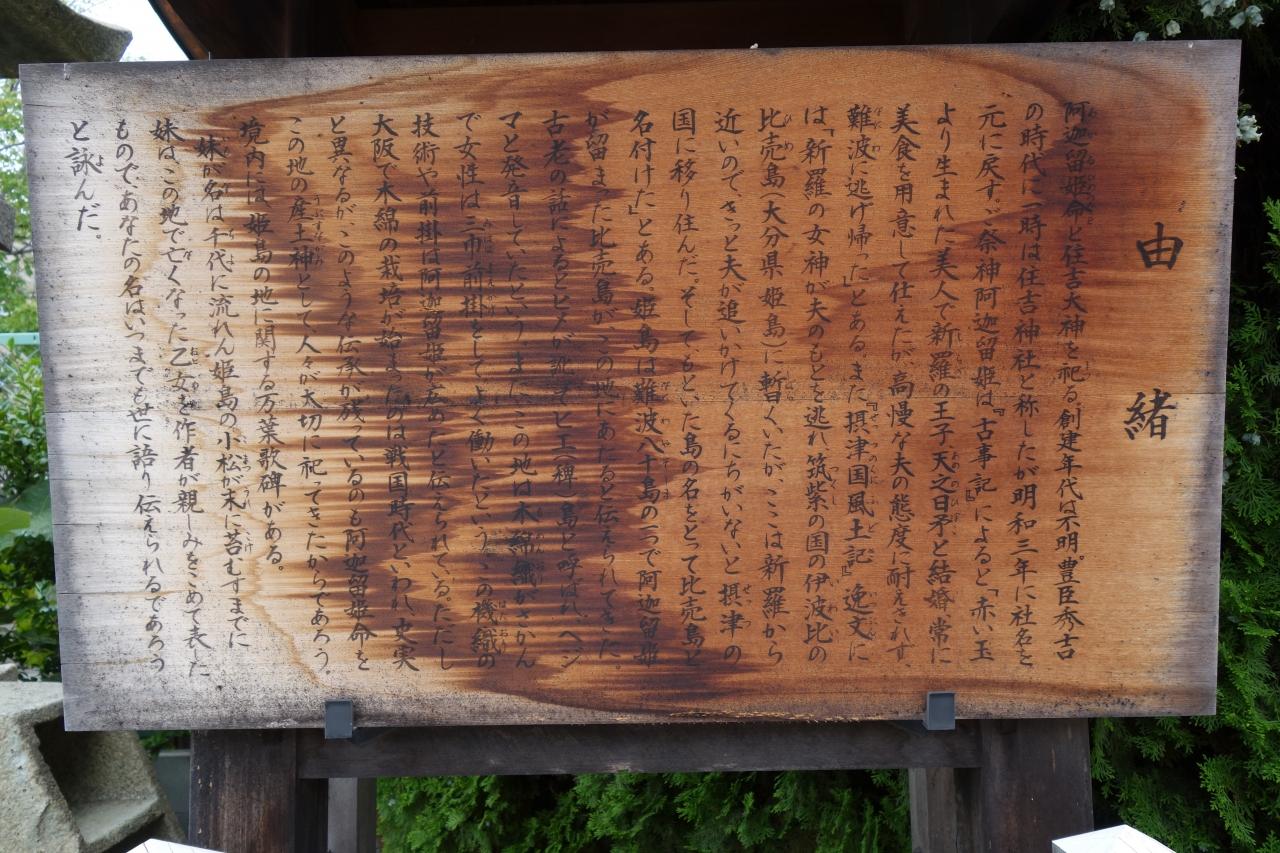 由緒
阿迦留姫命と住吉大神を祀る。創建年代は不明。豊臣秀吉
の時代に一時は住吉神社と称したが明和三年に社名を
元に戻す。祭神阿迦留姫は『古事記』によると「赤い玉
より生まれた美人で新羅の王子天之日矛と結婚常に
美食を用意して仕えたが、高慢な夫の態度に耐えきれず、
難波に逃げ帰った」とある。また『摂津国風土記』逸文に
は「新羅の女神が夫のもとを逃れ、筑紫の国の伊波比の
比売島(大分県姫島)に暫くいたが、ここは新羅から
近いので、きっと夫が追いかけてくるにちがいないと摂津の
国に移り住んだ。そしてもといた島の名をとって比売島と
名付けた」とある。姫島は難波八十島の一つで阿迦留姫
が留まった比売島が、この地にあたると伝えられてきた。
古老の話によるとヒメが訛ってヒエ(稗)島と呼ばれ、ヘジ
マと発音していたという。また、この地は木綿織がさかん
で女性は三巾前掛をしてよく働いたという。この機織の
技術や前掛は阿迦留姫が広めたと伝えられている。ただし
大阪で木綿の栽培が始まったのは戦国時代といわれ、史実
と異なるが、このような伝承が残っているのも阿迦留姫命を
この地の産土神として、人々が大切に祀ってきたからであろう。
境内には姫島の地に関する万葉歌碑がある。
妹が名は千代に流れん姫島の小松が末に苔むすまでに
妹はこの地で亡くなった乙女を作者が親しみをこめて表した
もので、あなたの名はいつまでも世に語り伝えられるであろう
と詠んだ。